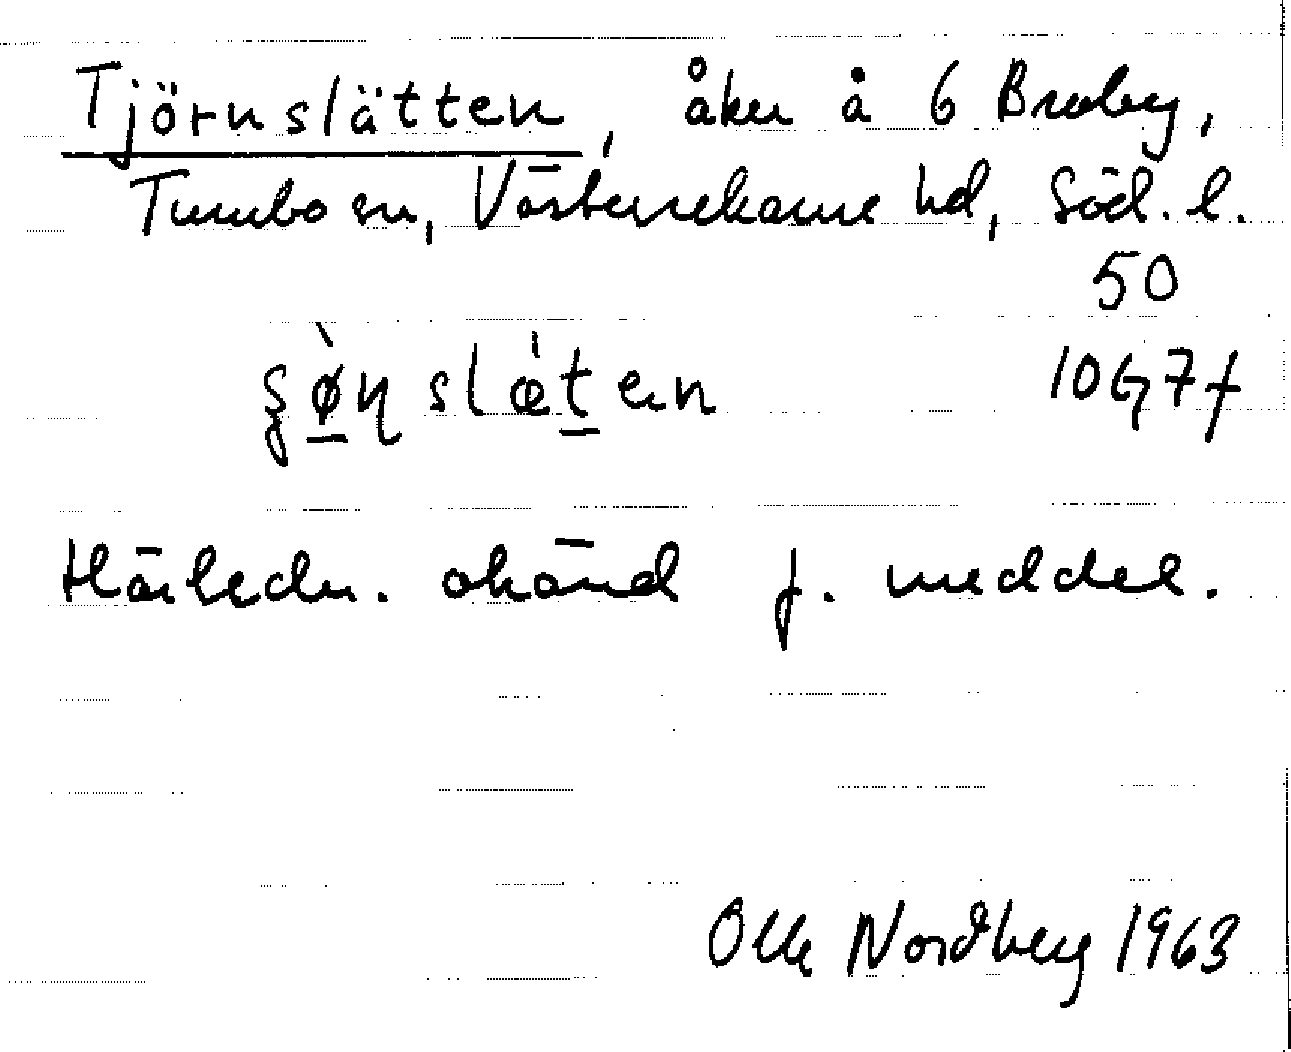 Tjörnslätten, åker å 6 Broby,
Tumbo sn, Västerrekarne hd, Söd. l.
50
10G7f
Härledn. okänd f. meddel.
Olle Nordberg 1963